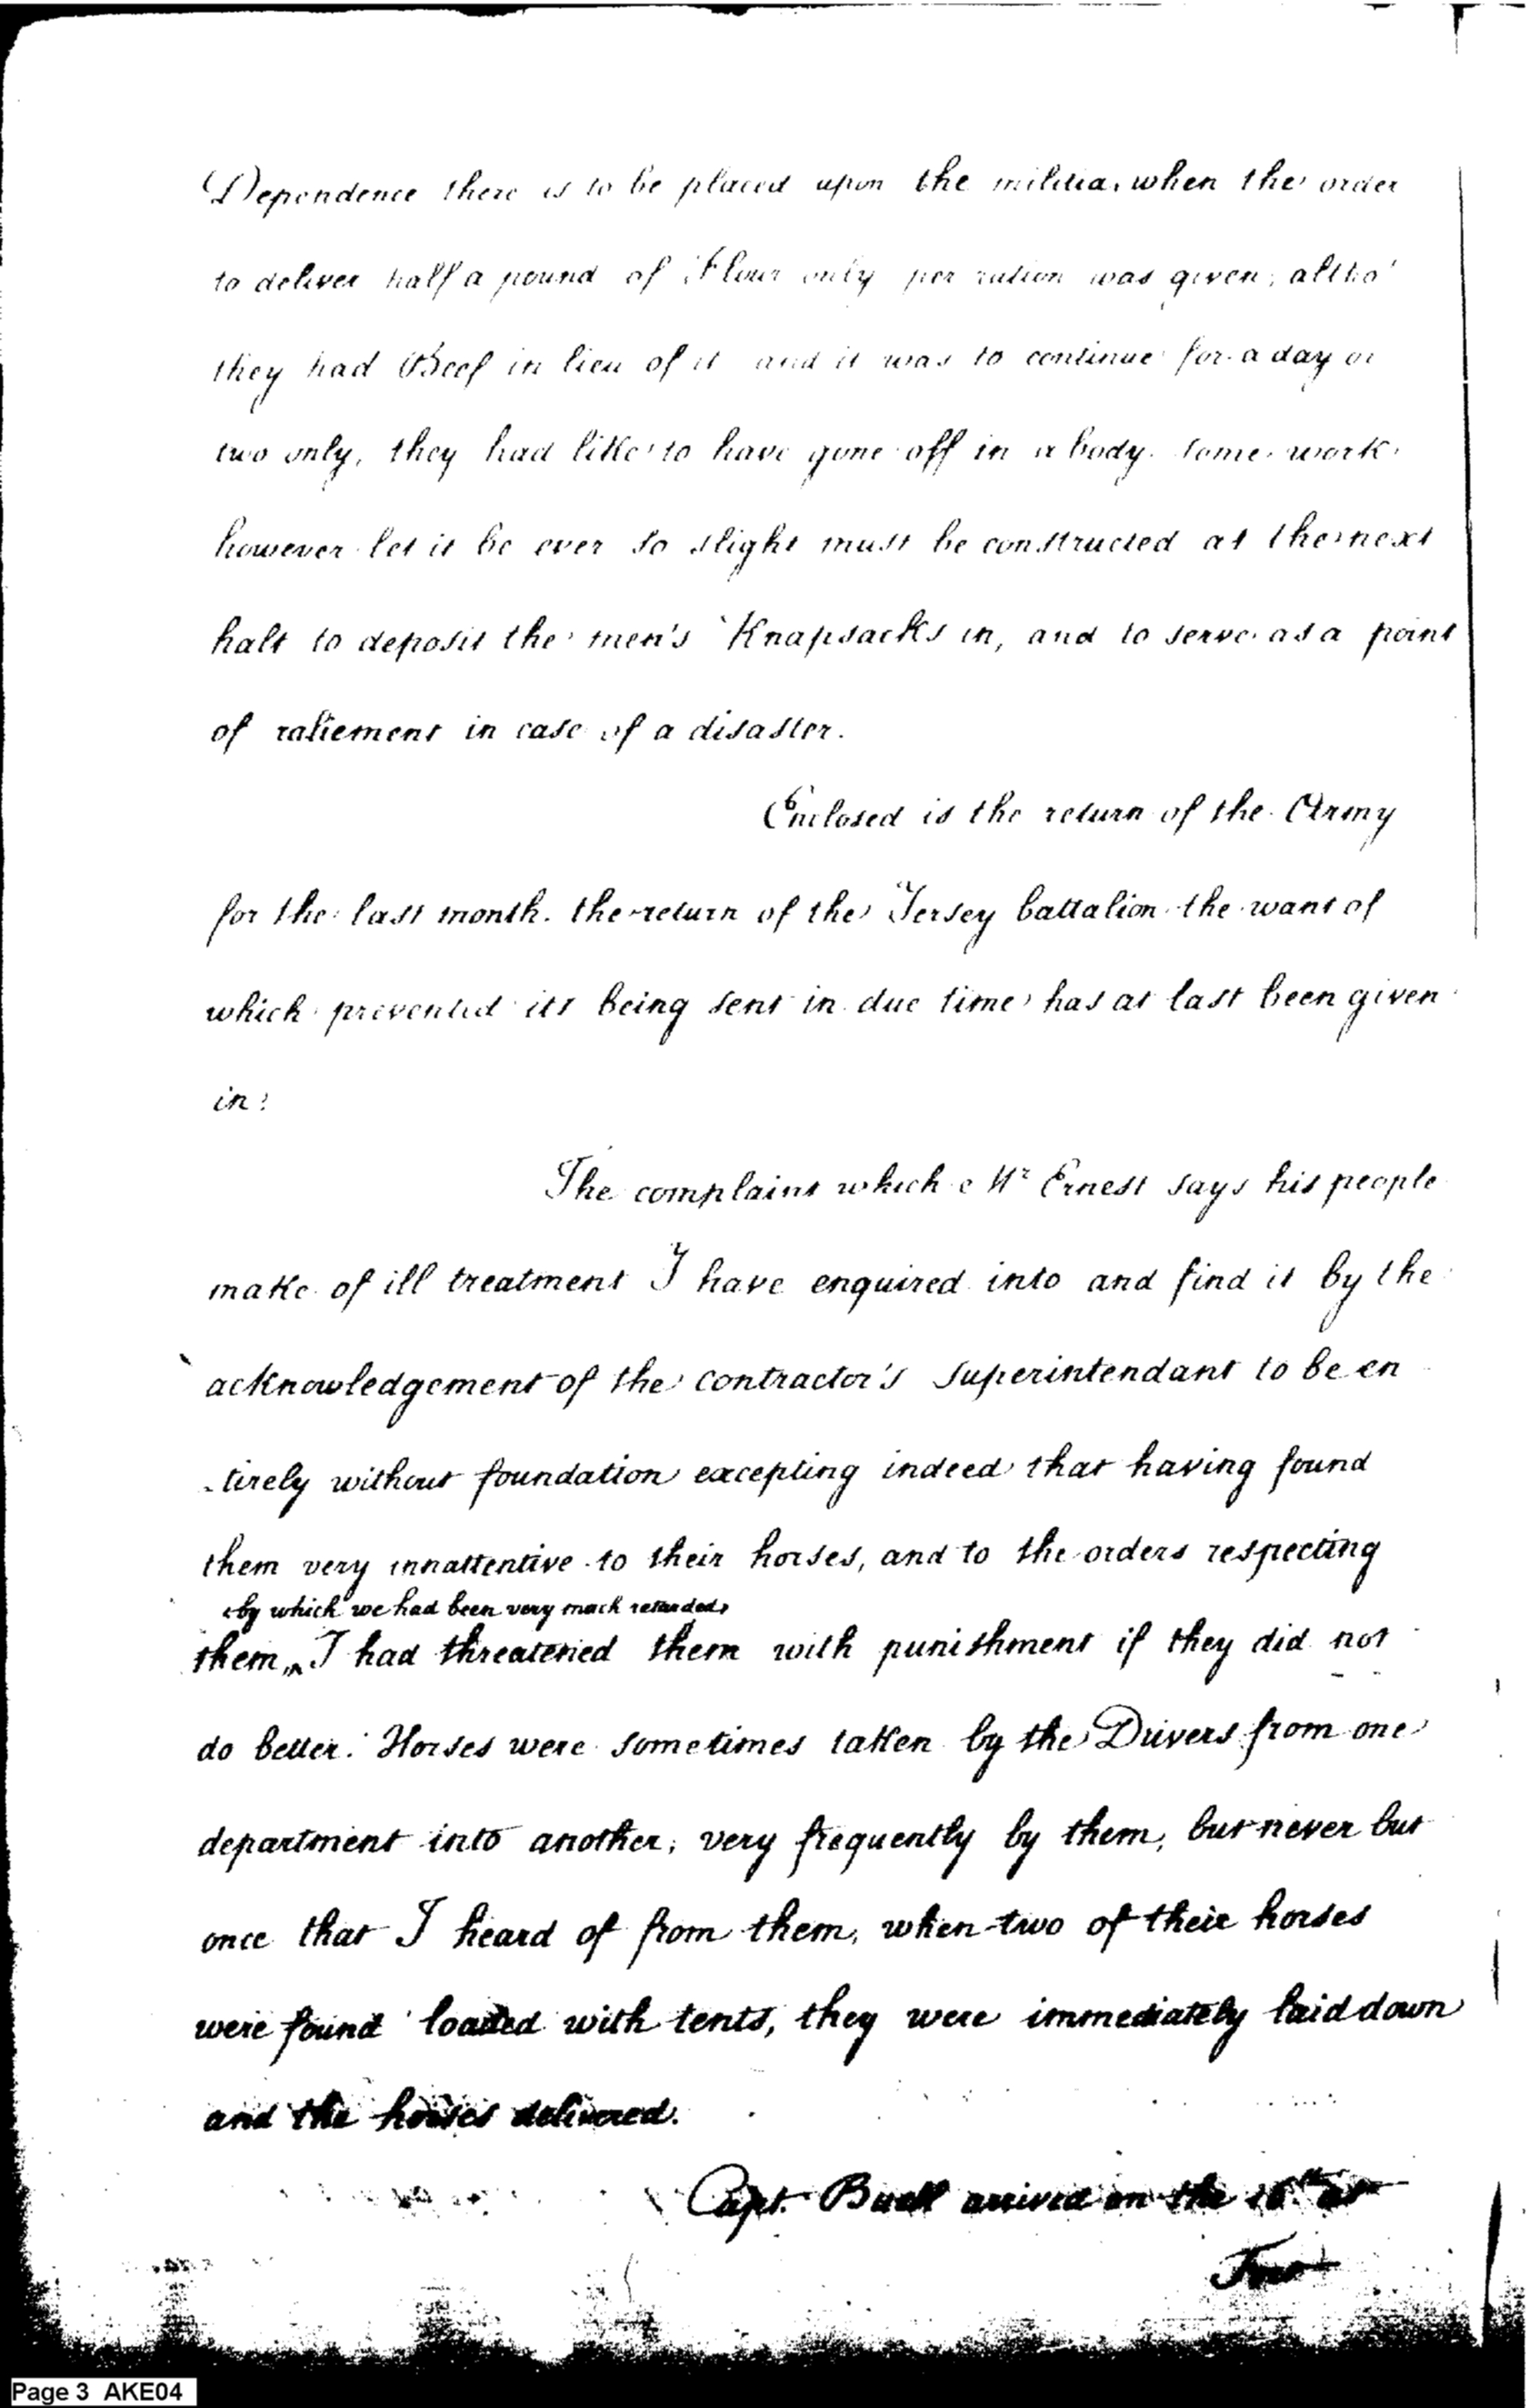 Dependence there is to be placed upon the militia, when the order
to deliver half a pound of Flour only per ration was given, altho'
they had Beef in lieu of it and it was to continue for a day or
two only, they had like to have gone off in a body. some work
however let it be ever so slight must be constructed at the next
halt to deposit the men's Knapsacks in, and to serve as a point
of raliement in case of a disaster.
Enclosed is the return of the Army
for the last month. the return of the Jersey battalion the want of
which prevented its being sent in due time has at last been given
in:
The complaint which Mr Ernest says his people
make of ill treatment I have enquired into and find it by the
acknowledgement of the contractor's superintendant to be en
-tirely without foundation excepting indeed that having found
them very innattentive to their horses, and to the orders respecting
by which we had been very much retarded,
them, I had threatened them with punishment if they did not
do better. Horses were sometimes taken by the Drivers from one
department into another, very frequently by them, but never but
once that I heard of from them, when two of their horses
were found loaded with tents, they were immediately laid down
and the horses delivered.
Capt. Buell arrived on the 16th at
Fort
Page 3 AKE04